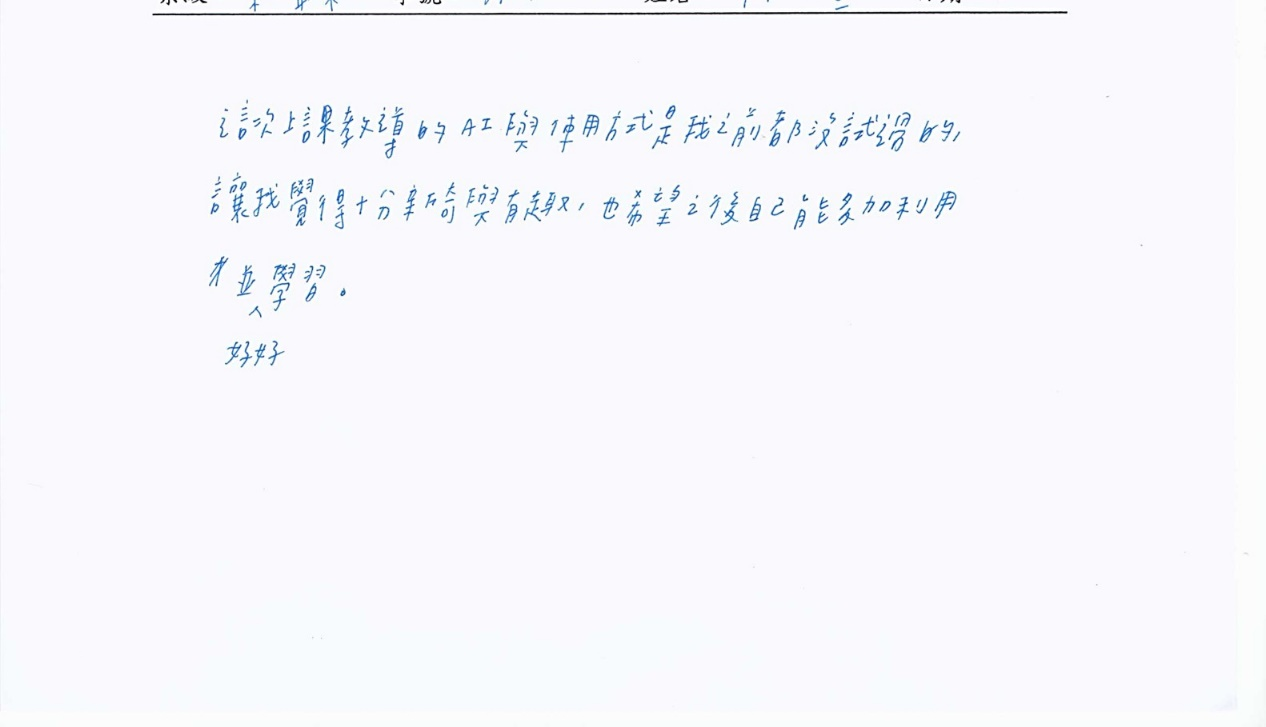 這次上課教導的AI與使用方式是我之前都沒試過的,
讓我覺得十分新奇與有趣,也希望之後自己能多加利用
並學習。
好好